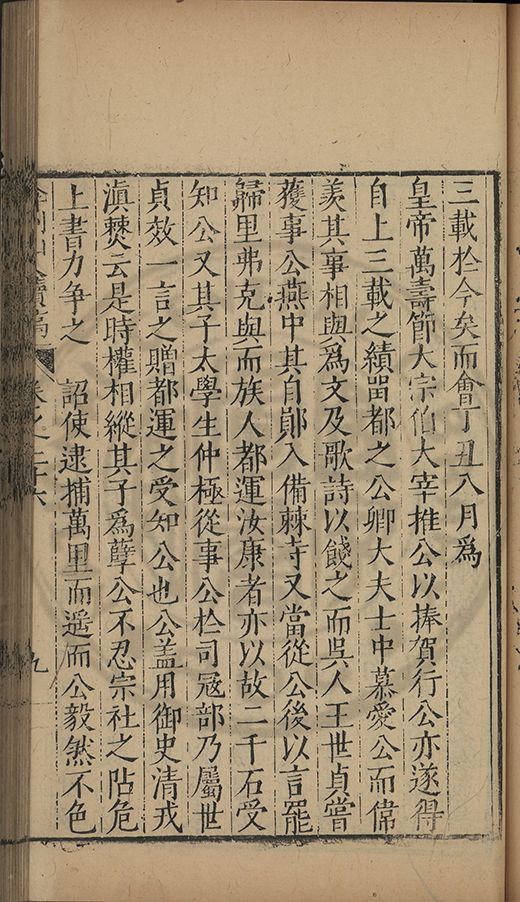 三載於今矣而會丁丑八月為
皇帝萬壽節大宗伯大宰推公以捧賀行公亦遂得
自上三載之績畱都之公卿大夫士中慕愛公而偹
美其事相與為文及歌詩以餞之而吳人王世貞嘗
獲事公燕中其自鄖入備棘寺又當從公後以言罷
歸里弗克與而族人都運汝康者亦以故二千石受
知公又其子太學生仲極從事公於司冦部乃屬世
貞效一言之贈都運之受知公也公盖用御史清戎
滇僰云是時權相縱其子為孽公不忍宗社之阽危
上書力争之 詔使逮捕萬里而遥而公毅然不色
續稿 卷之二十六 九